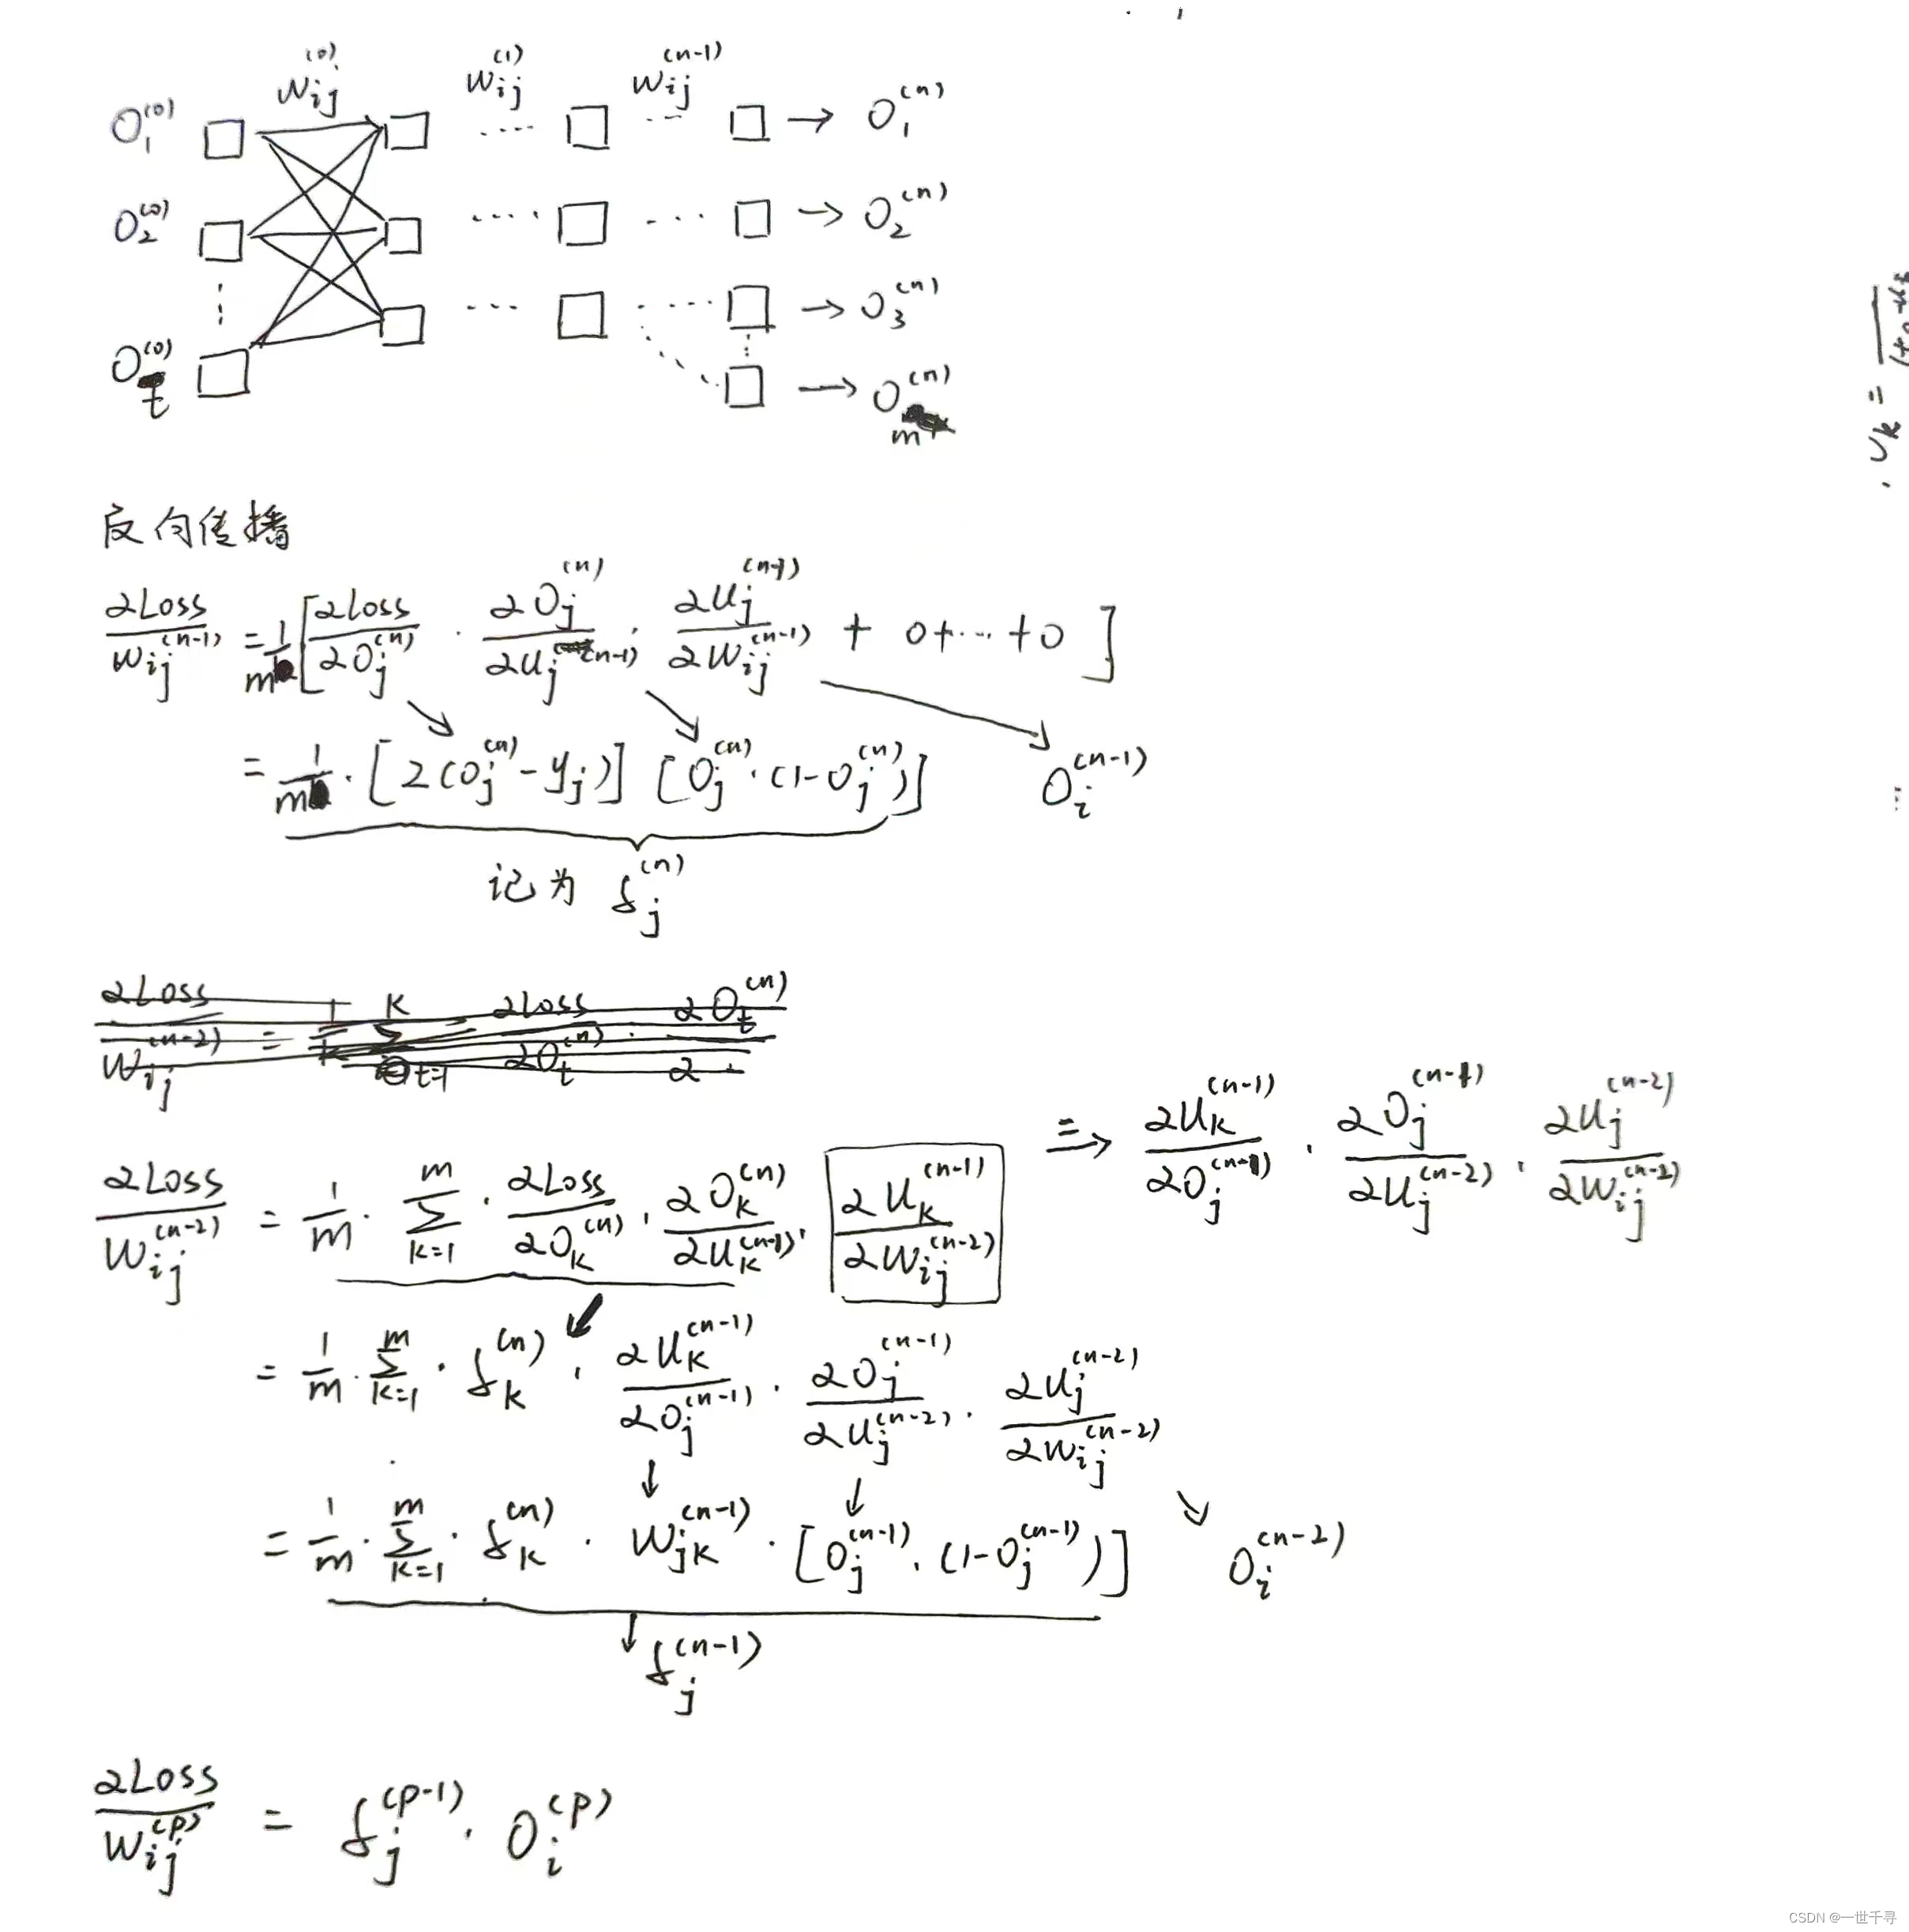 W_{ij}^{(0)} W_{ij}^{(1)} W_{ij}^{(n-1)}
O_1^{(0)} □ □ .... □ ... □ → O_1^{(n)}
O_2^{(0)} □ □ .... □ ... □ → O_2^{(n)}
□ ... □ .... □ → O_3^{(n)}
O_t^{(0)} □ □ → O_m^{(n)}
反向传播
∂Loss / W_{ij}^{(n-1)} = 1/m [ ∂Loss/∂O_j^{(n)} · ∂O_j^{(n)}/∂U_j^{(n-1)} · ∂U_j^{(n-1)}/∂W_{ij}^{(n-1)} + 0+...+0 ]
= 1/m · [2(O_j^{(n)} - y_j)] [O_j^{(n)} · (1-O_j^{(n)})] O_i^{(n-1)}
记为 δ_j^{(n)}
∂Loss / W_{ij}^{(n-2)} = 1/m · Σ_{k=1}^{m} · ∂Loss/∂O_k^{(n)} · ∂O_k^{(n)}/∂U_k^{(n-1)} · ∂U_k^{(n-1)}/∂W_{ij}^{(n-2)} ⇒ ∂U_k^{(n-1)}/∂O_j^{(n-1)} · ∂O_j^{(n-1)}/∂U_j^{(n-2)} · ∂U_j^{(n-2)}/∂W_{ij}^{(n-2)}
= 1/m · Σ_{k=1}^{m} · δ_k^{(n)} · ∂U_k^{(n-1)}/∂O_j^{(n-1)} · ∂O_j^{(n-1)}/∂U_j^{(n-2)} · ∂U_j^{(n-2)}/∂W_{ij}^{(n-2)}
= 1/m · Σ_{k=1}^{m} · δ_k^{(n)} · W_{jk}^{(n-1)} · [O_j^{(n-1)} · (1-O_j^{(n-1)})] O_i^{(n-2)}
δ_j^{(n-1)}
∂Loss / W_{ij}^{(p)} = δ_j^{(p-1)} · O_i^{(p)}
CSDN @一世千寻